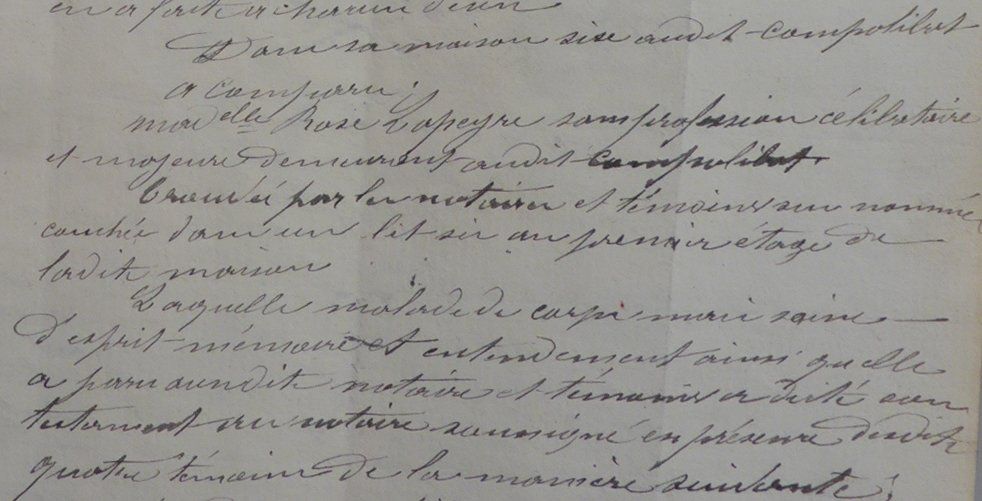 en a fait à chacun d'eux
Dans sa maison sise audit Compolibat
a comparu:
Mad^elle Rose Lapeyre sans profession célibataire
et majeure demeurant audit Compolibat.
Trouvée par les notaire et témoins sus nommés
couchée dans un lit sis au premier étage de
ladite maison
Laquelle malade de corps mais saine
d'esprit mémoire et entendement ainsi qu'elle
a paru auxdits notaire et témoins a dicté son
testament au notaire soussigné en présence desdits
quatre témoins de la manière suivante: